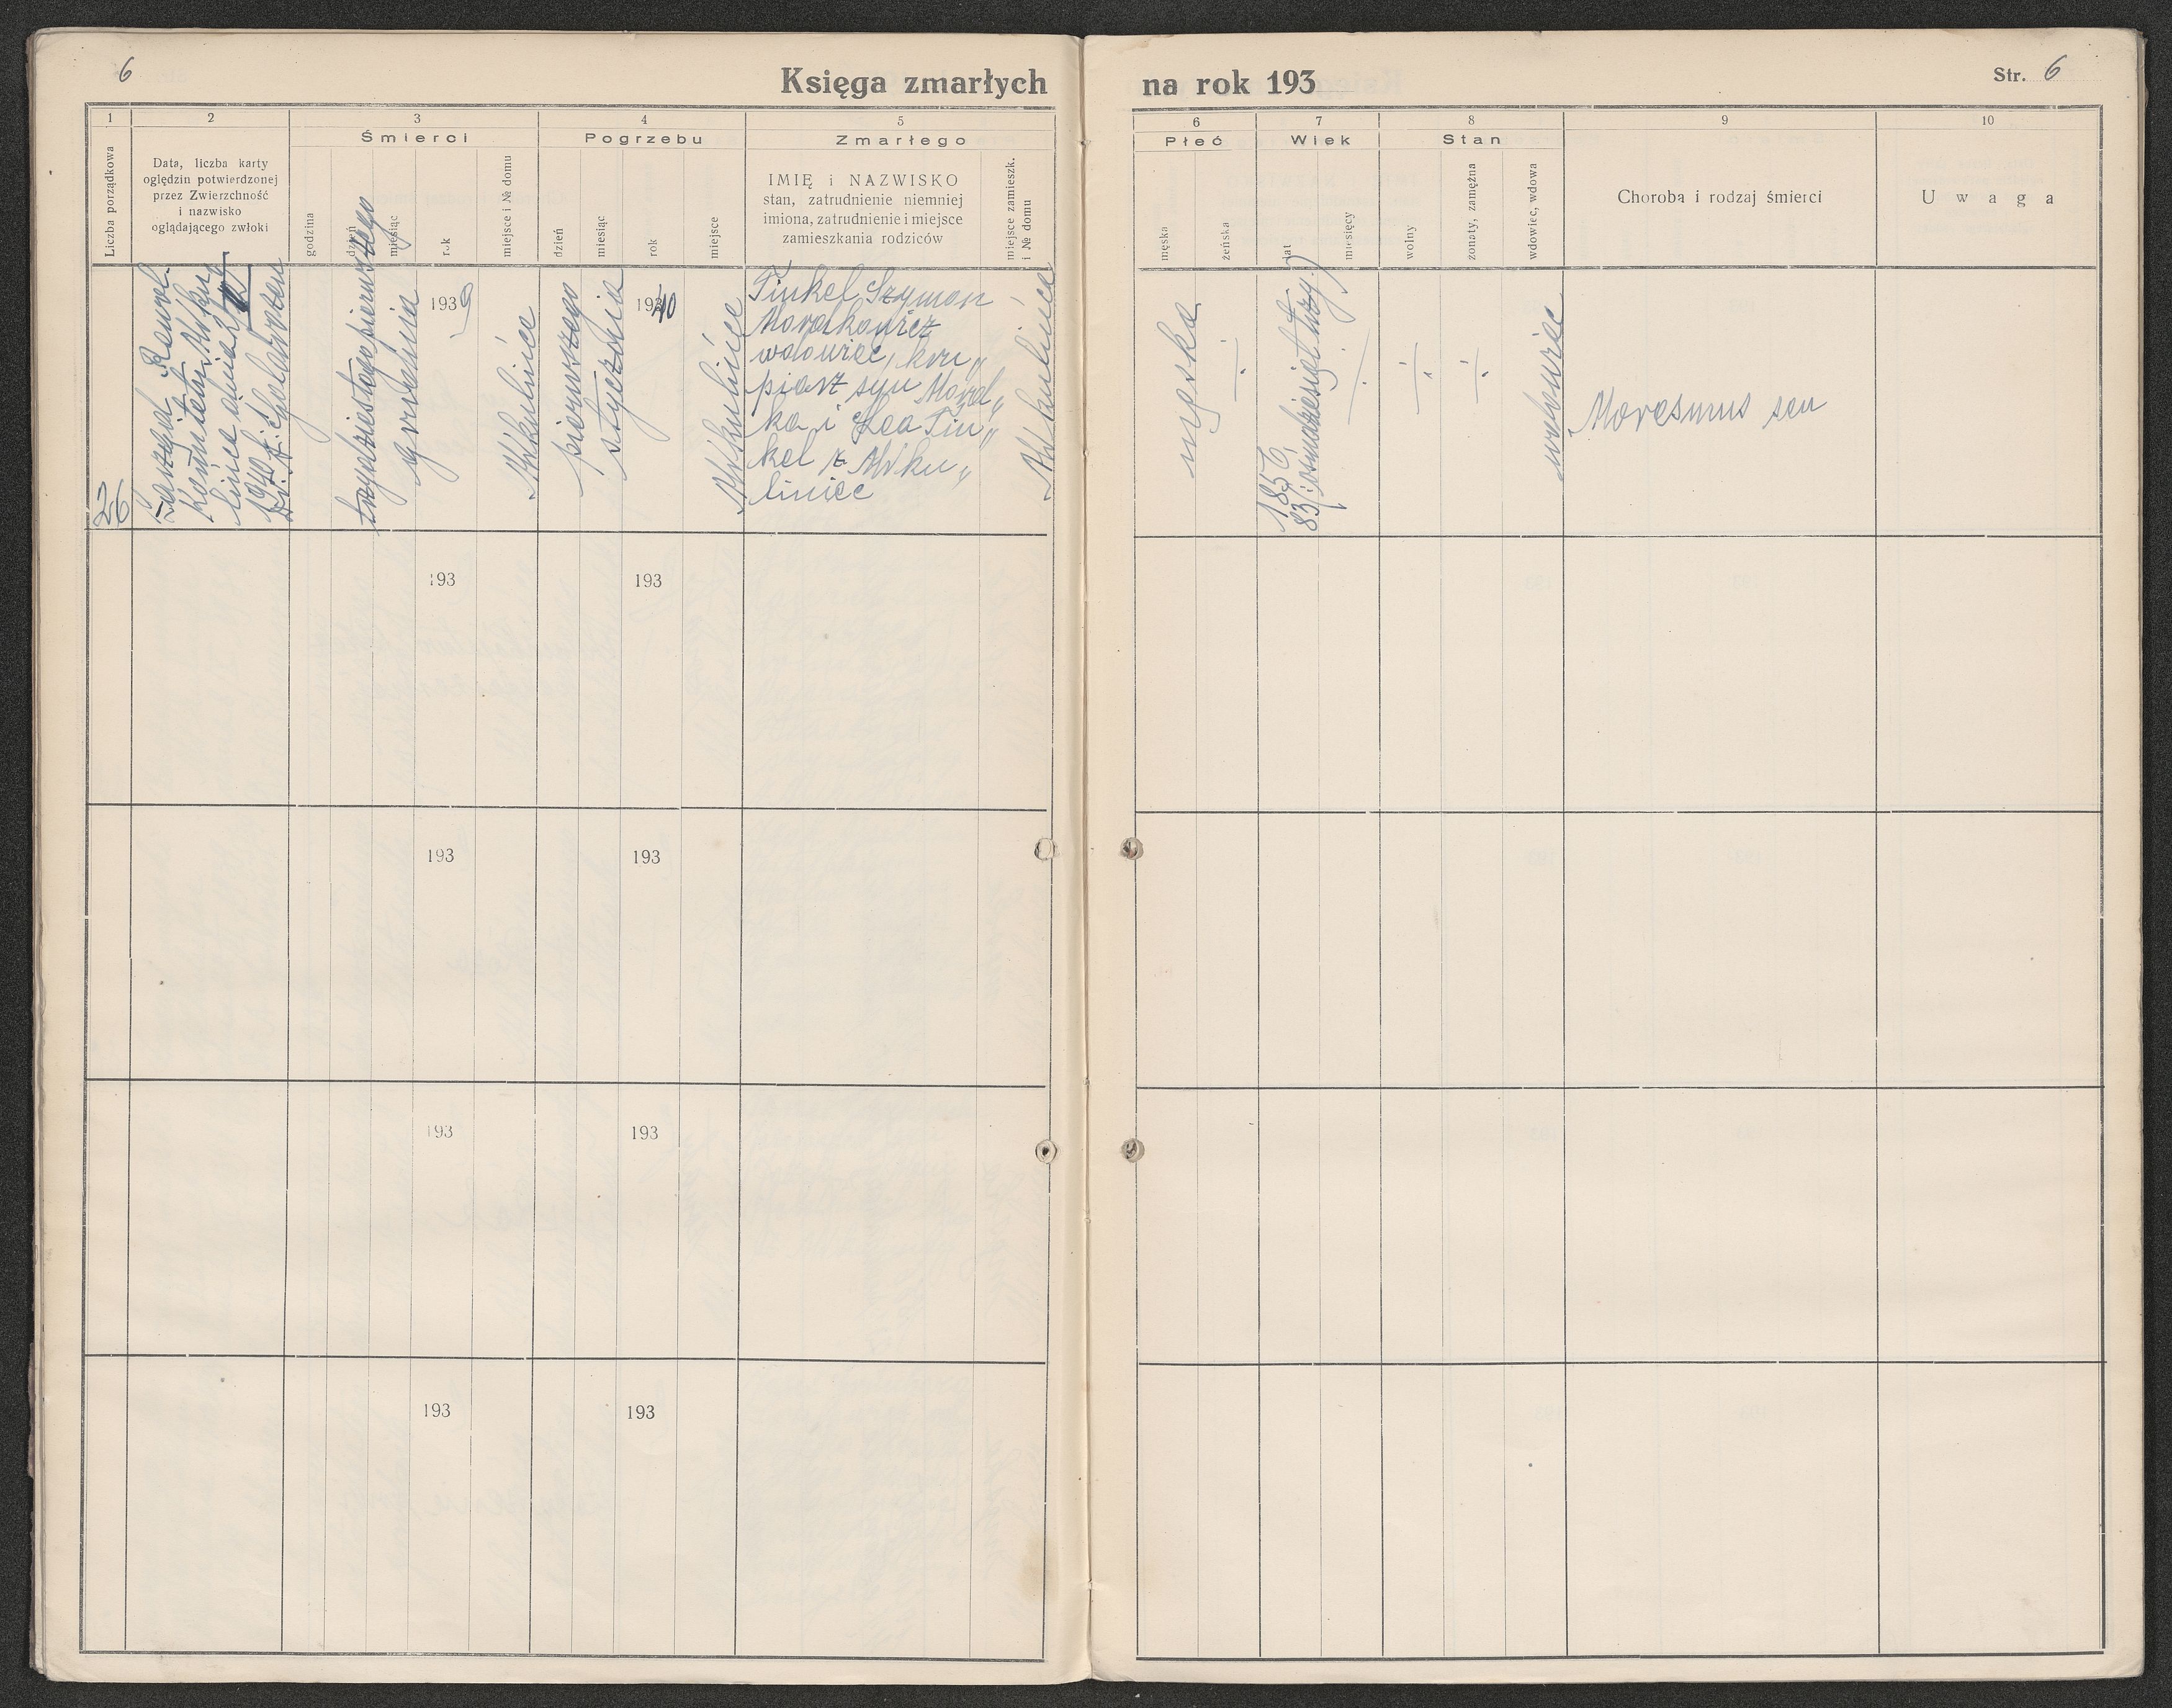 6
Księga zmarłych
na rok 193
Str. 6
1
2
3
4
5
6
7
8
9
10
Śmierci
Pogrzebu
Zmarłego
Płeć
Wiek
Stan
Liczba porządkowa
Data, liczba karty
oględzin potwierdzonej
przez Zwierzchność
i nazwisko
oglądającego zwłoki
godzina
dzień
miesiąc
rok
miejsce i № domu
dzień
miesiąc
rok
miejsce
IMIĘ i NAZWISKO
stan, zatrudnienie niemniej
imiona, zatrudnienie i miejsce
zamieszkania rodziców
miejsce zamieszk.
i № domu
męska
żeńska
lat
miesięcy
wolny
żonaty, zamężna
wdowiec, wdowa
Choroba i rodzaj śmierci
Uwaga
26
Zarząd
Komitetu Miku
lińce dnia
1940
Dr.
trzydziestego pierwszego
grudnia
1939
Mikulińce
pierwszego
stycznia
193 40
Mikulińce
Finkel Szymon
Mordkowicz
wdowiec, kru„
piarz syn Mord„
ka i Lea Fin„
kel z Miku„
liniec
Mikulińce
męska
÷
1856
83 (osiemdziesiąt trzy)
÷
÷
÷
wdowiec
Maresmus sen
193
193
193
193
193
193
193
193